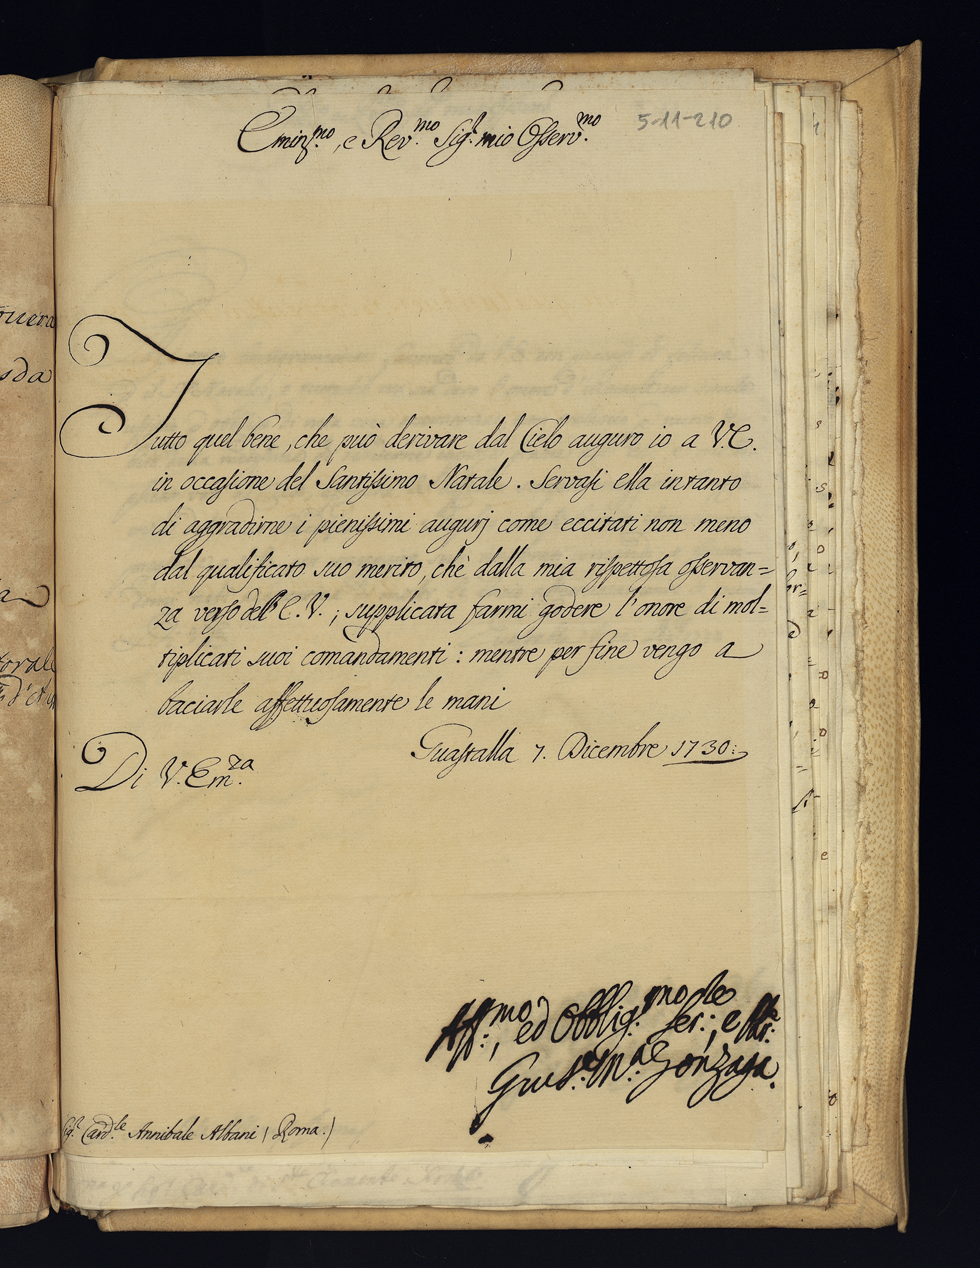 5-11-210
Eminmo., e Revmo. Sigr. mio Osservmo.
Tutto quel bene, che può derivare dal Cielo auguro io a V.E.
in occasione del Santissimo Natale. Servasi ella intanto
di aggradirne i pienissimi augurj come eccitati non meno
dal qualificato suo merito, chè dalla mia rispettosa osservan=
za verso dell'E.V.; supplicata farmi godere l'onore di mol=
tiplicati suoi comandamenti: mentre per fine vengo a
baciarle affettuosamente le mani
Guastalla 7. Dicembre 1730:
Di V. Emza.
Affmo., ed Obbligmo. Ser.,
Gius.e Ma. Gonzaga.
Sigr. Cardle. Annibale Albani (Roma:)